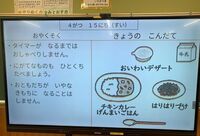 4がつ 15にち(すい)
おやくそく
・タイマーが なるまでは
おしゃべりしません。
・にがてなものも ひとくち
たべましょう。
・おともだちが いやな
きもちに なることは
しません。
きょうの こんだて
牛乳
おいわいデザート
チキンカレー
げんまいごはん
はりはりづけ